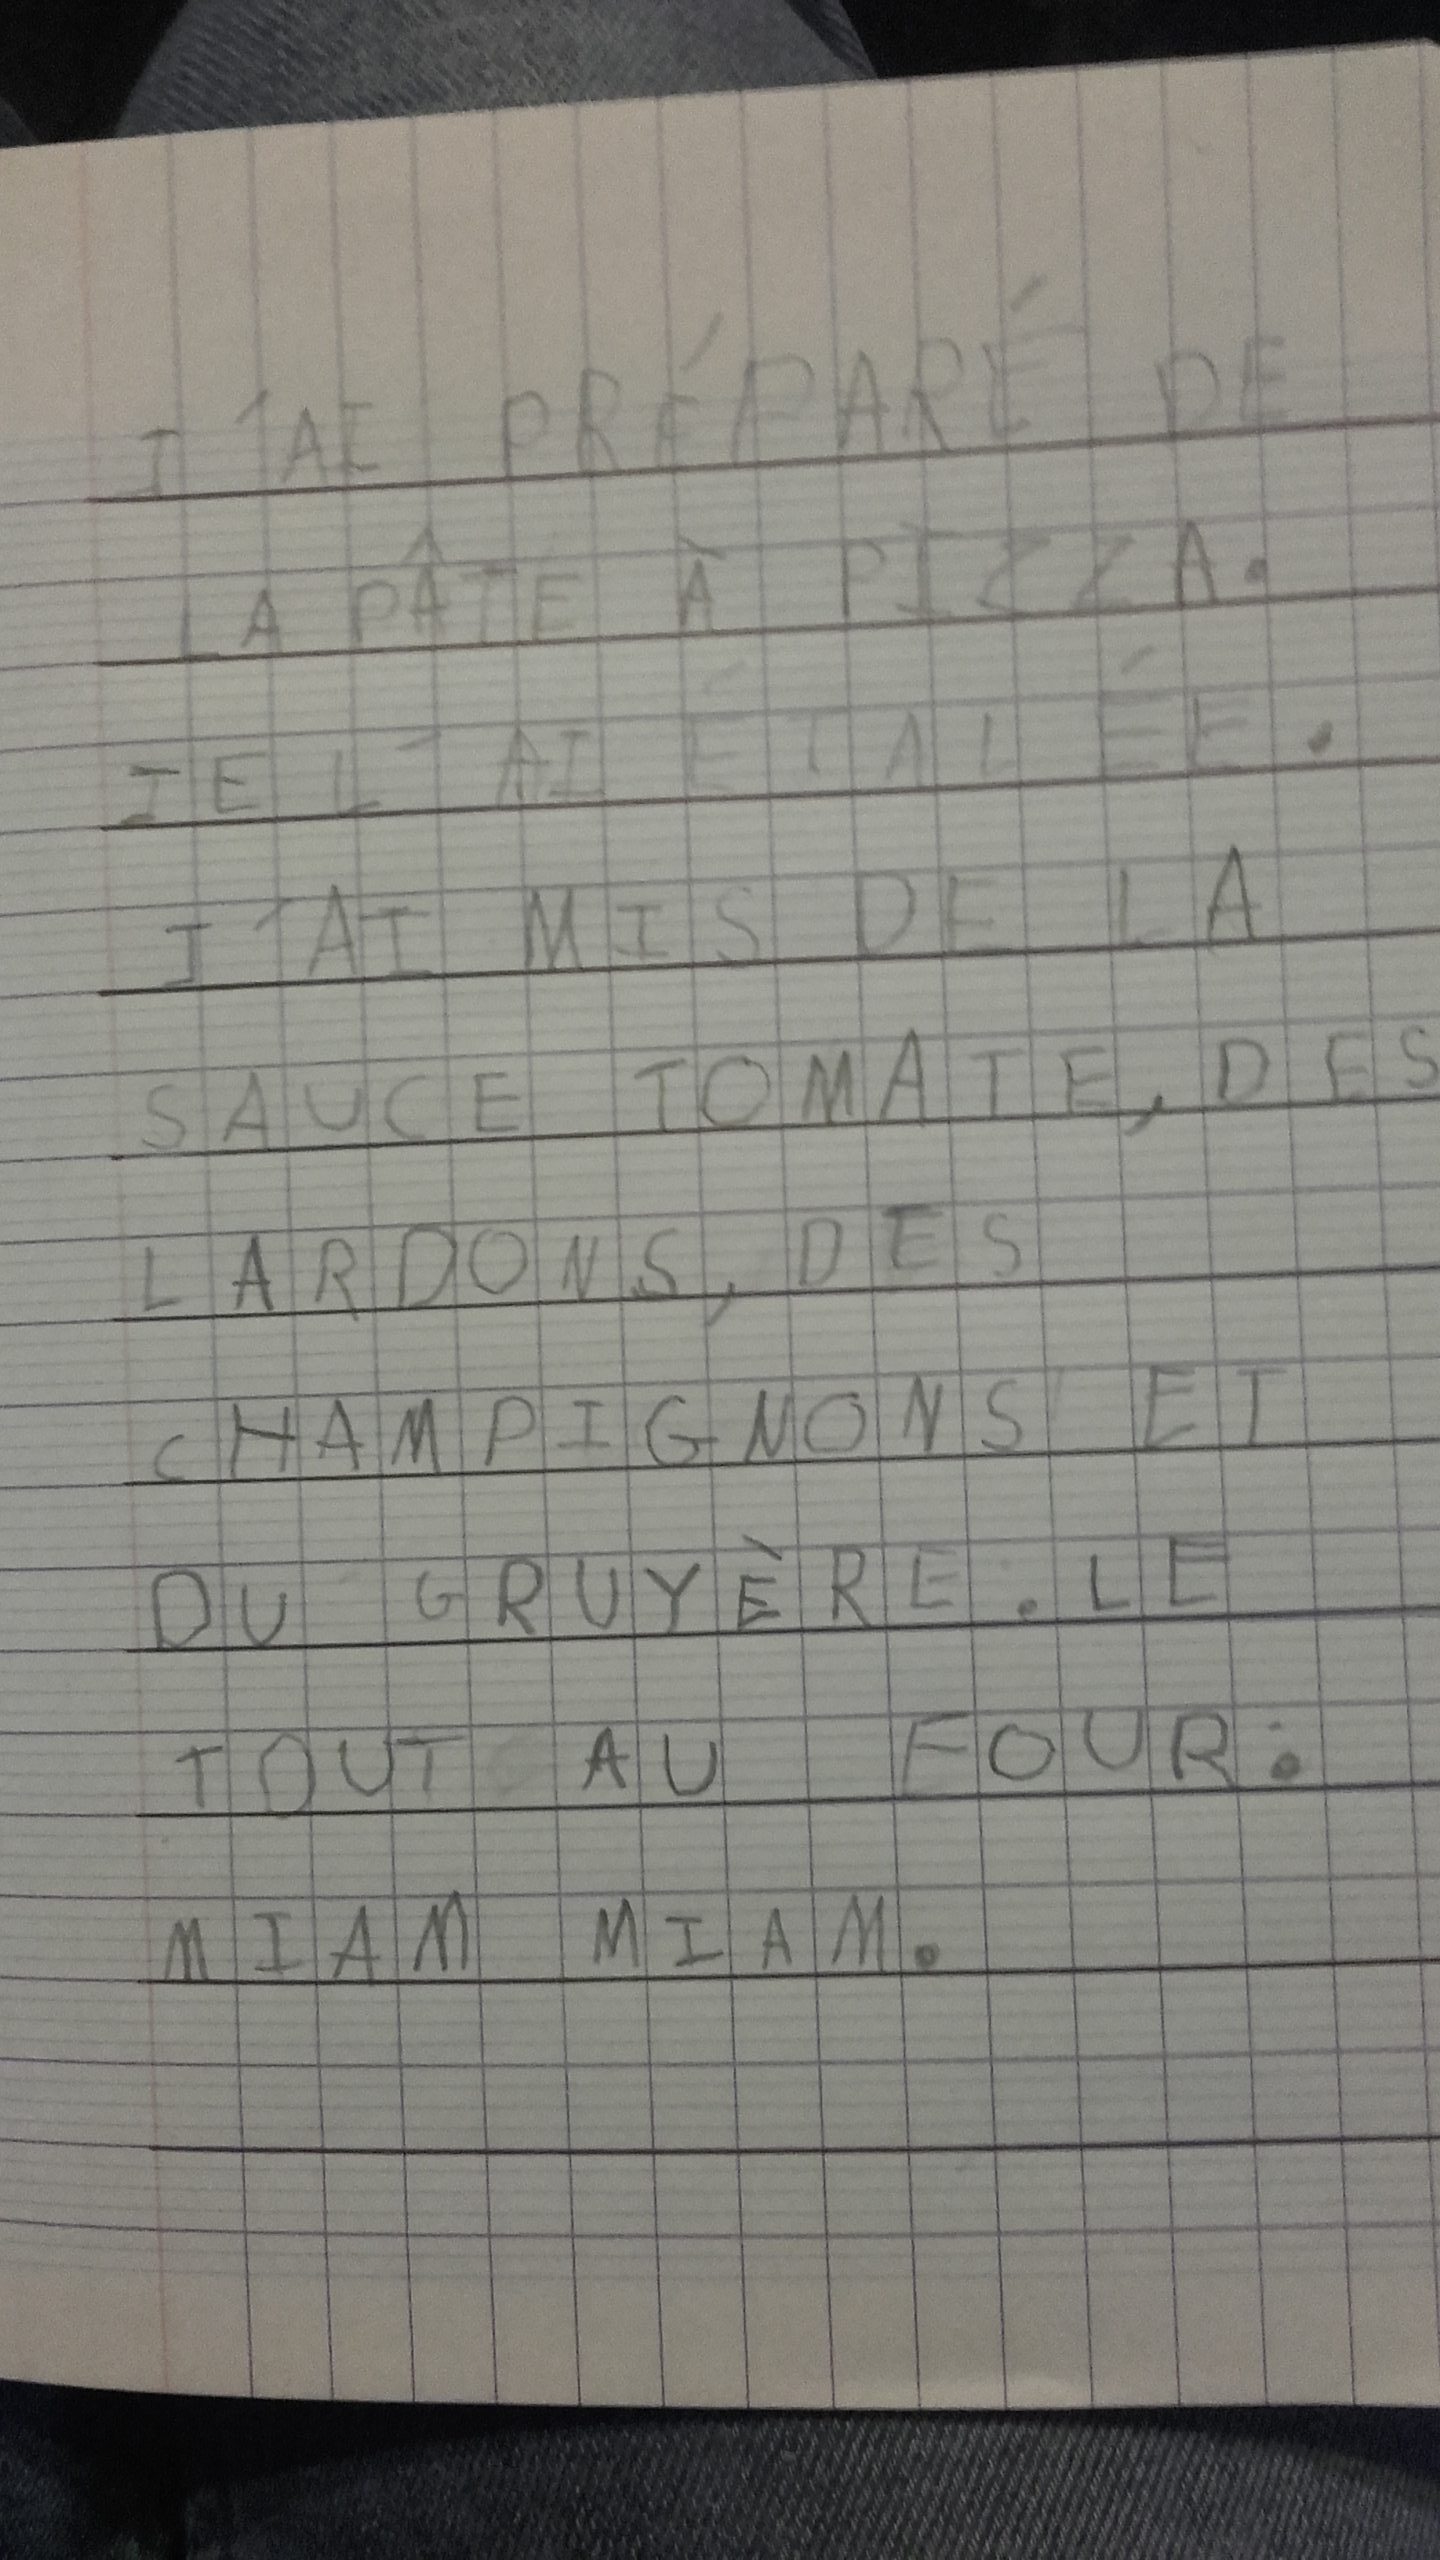 J'AI PRÉPARÉ DE
LA PÂTE À PIZZA.
JE L'AI ÉTALÉE.
J'AI MIS DE LA
SAUCE TOMATE, DES
LARDONS, DES
CHAMPIGNONS ET
DU GRUYÈRE. LE
TOUT AU FOUR:
MIAM MIAM.